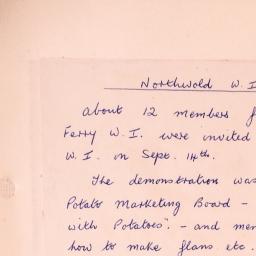 Northwold W. I
About 12 members f
Ferry W. I. were invited
W. I. on Sept. 14th.
The demonstration was
Potato Marketing Board -
with Potatoes". - and mem
how to make flans etc.